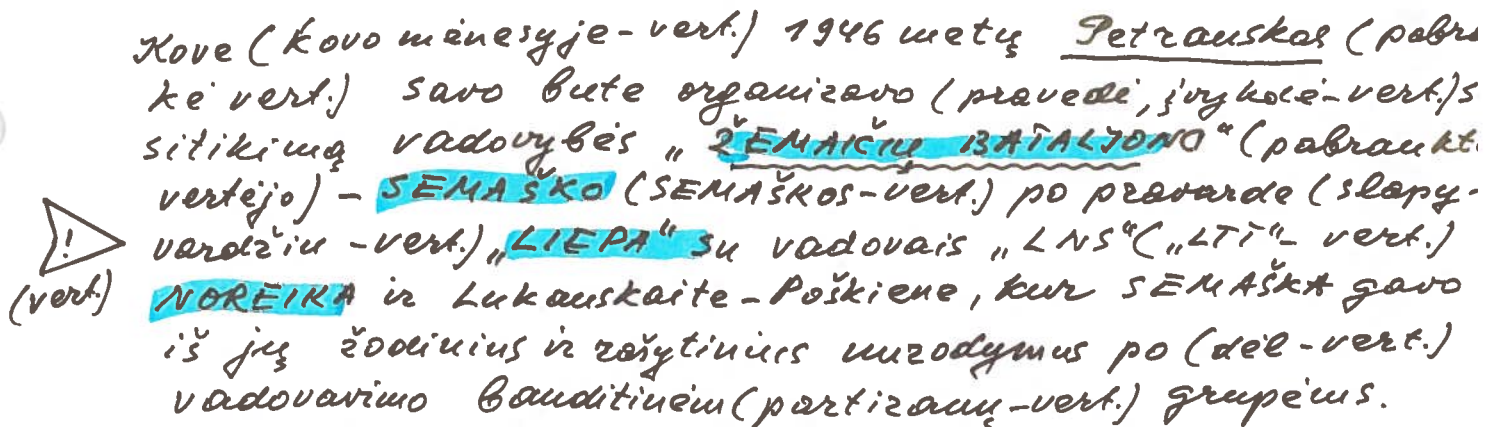 Kove (kovo mėnesyje-vert.) 1946 metų Petrauskas (pabra
kė vert.) savo bute organizavo (pravedė, įvykdė-vert.) s
sitikimą vadovybės „ŽEMAIČIŲ BATALJONO“ (pabraukt.
vertėjo) - SEMAŠKO (SEMAŠKOS-vert.) po pravarde (slapy-
vardžiu -vert.) „LIEPA“ su vadovais „LNS“ („LTT“- vert.)
NOREIKA ir Lukauskaite-Poškiene, kur SEMAŠKA gavo
iš jų žodinius ir rašytinius nurodymus po (dėl-vert.)
vadovavimo banditinėm (partizanų-vert.) grupėms.
!
(vert.)